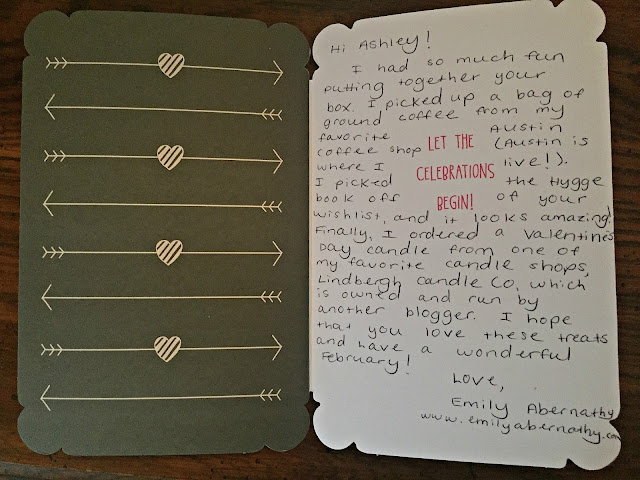 Hi Ashley!
I had so much fun
putting together your
box. I picked up a bag of
ground coffee from my
favorite Austin
coffee shop (Austin is
where I live!).
I picked the Hygge
book off of your
wishlist, and it looks amazing!
Finally, I ordered a Valentine's
Day candle from one of
my favorite candle shops,
Lindbergh Candle Co, which
is owned and run by
another blogger. I hope
that you love these treats
and have a wonderful
February!
Love,
Emily Abernathy
www.emilyabernathy.com
LET THE
CELEBRATIONS
BEGIN!